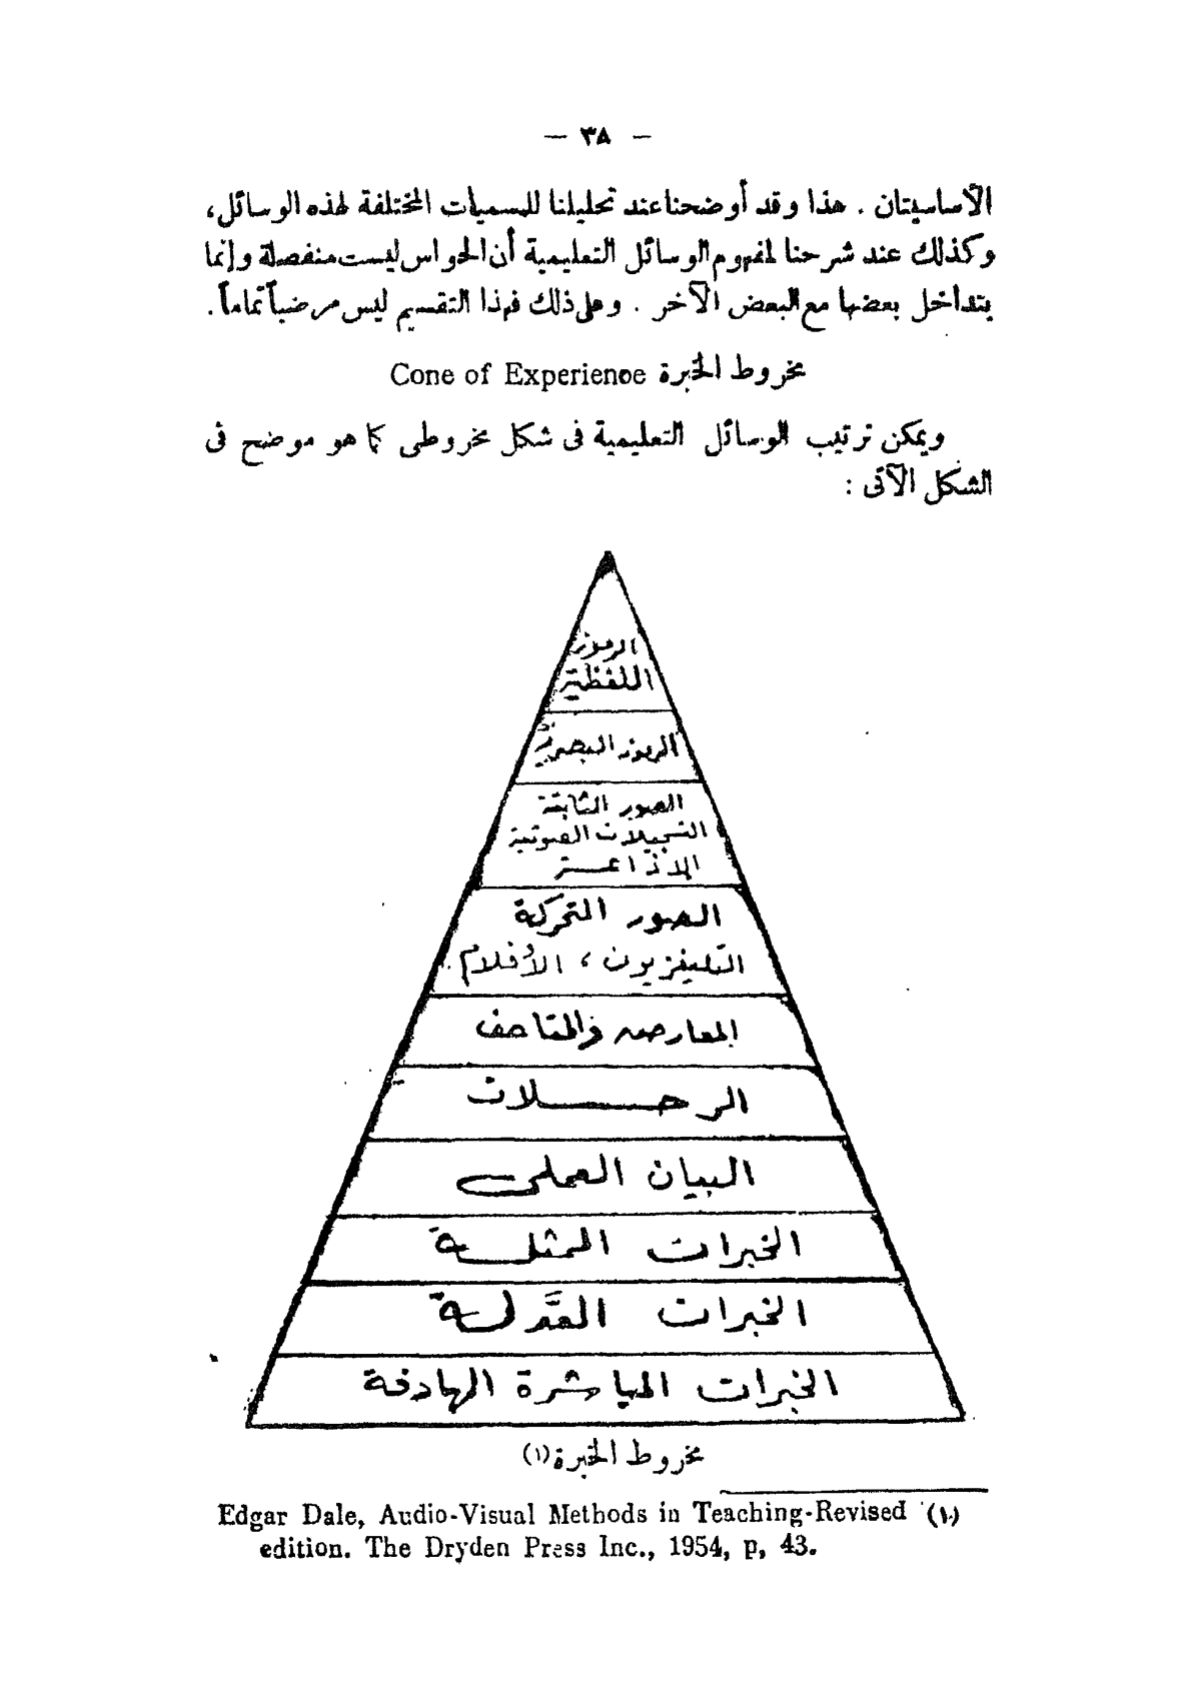 — ٣٨ —
الأساسيتان . هذا وقد أوضحنا عند تحليلنا للمسميات المختلفة لهذه الوسائل،
وكذلك عند شرحنا لمفهوم الوسائل التعليمية أن الحواس ليست منفصلة وإنما
يتداخل بعضها مع البعض الآخر . وعلى ذلك فهذا التقسيم ليس مرضياً تماماً .
مخروط الخبرة Cone of Experience
ويمكن ترتيب الوسائل التعليمية فى شكل مخروطى كما هو موضح فى
الشكل الآتى :
الرموز
اللفظية
الرموز البصرية
الصور الثابتة
التسجيلات الصوتية
الإذاعة
الصور المتحركة
التليفزيون ، الأفلام
المعارض والمتاحف
الرحلات
البيان العملى
الخبرات الممثلة
الخبرات المعدلة
الخبرات المباشرة الهادفة
مخروط الخبرة (١)
(١) Edgar Dale, Audio-Visual Methods in Teaching-Revised
edition. The Dryden Press Inc., 1954, p, 43.